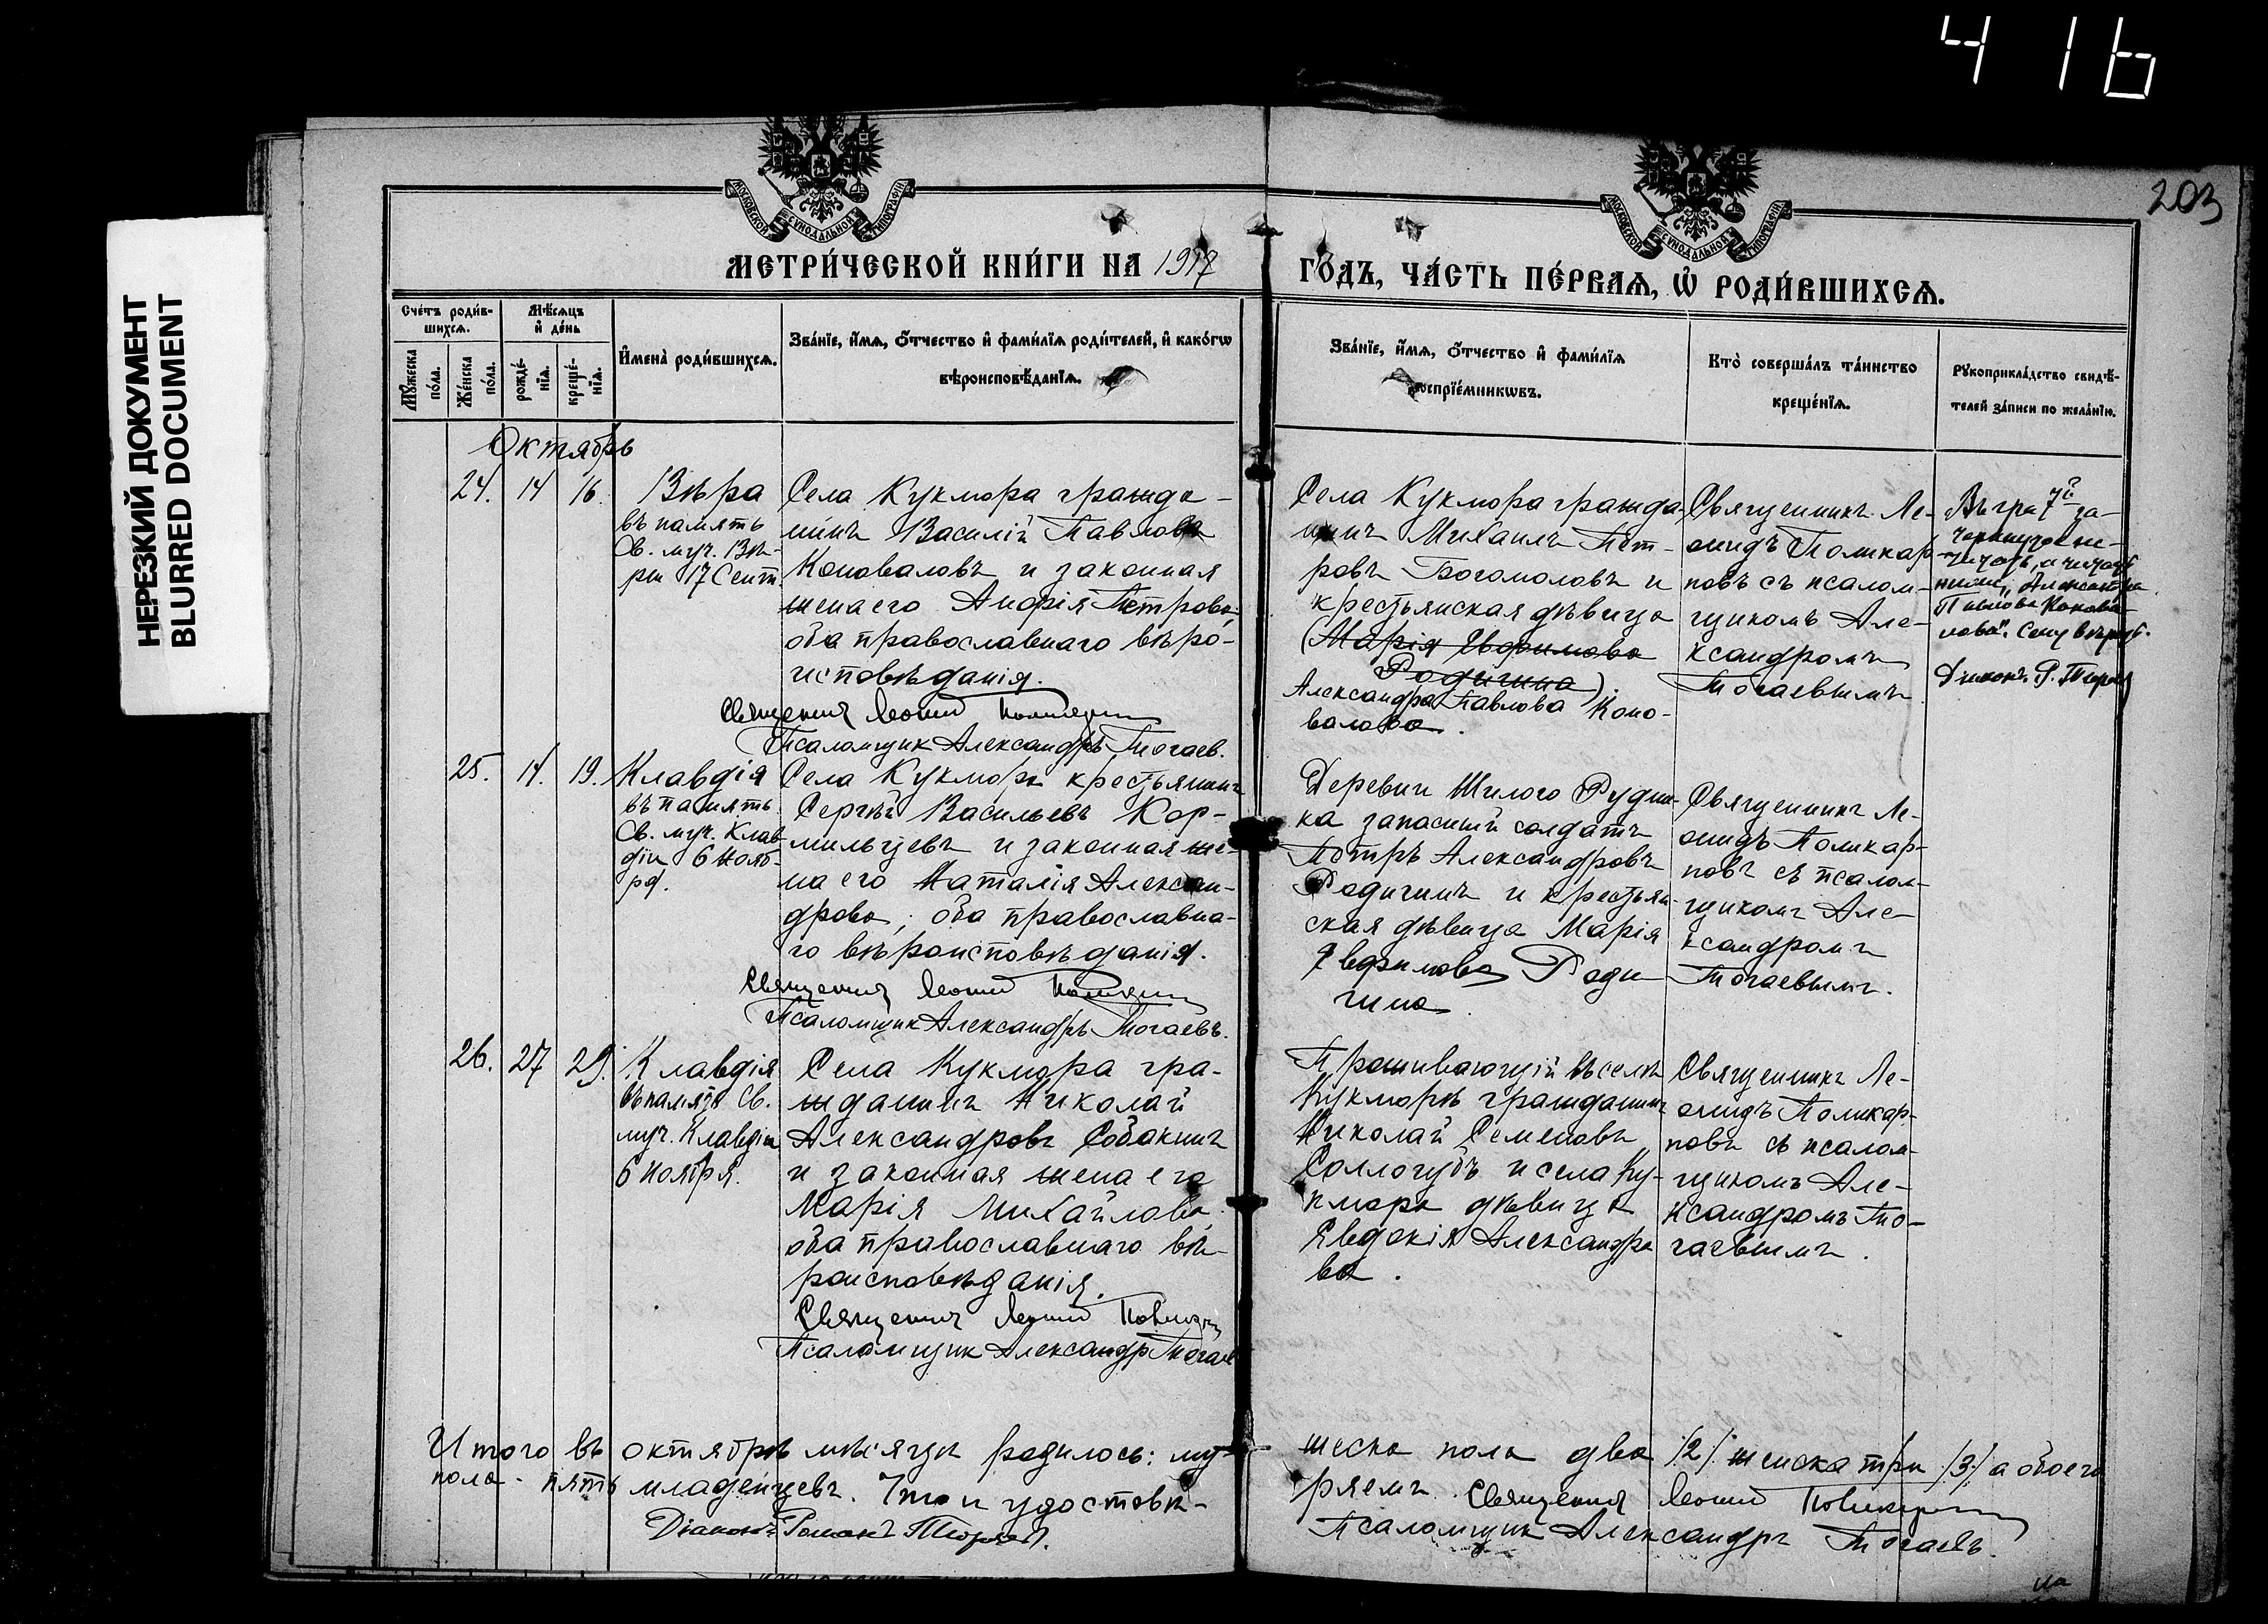 416
203
НЕРЕЗКИЙ ДОКУМЕНТ
BLURRED DOCUMENT
МОСКОВСКОЙ СѴНОДАЛЬНОЙ ТИПОГРАФІИ
МОСКОВСКОЙ СѴНОДАЛЬНОЙ ТИПОГРАФІИ
МЕТРИ́ЧЕСКОЙ КНИ́ГИ НА 1917
ГО́ДЪ, ЧА́СТЬ ПЕ́РВАЯ, Ѡ҆ РОДИ́ВШИХСЯ.
Сче́тъ роди́в-
шихся.
Мѣ́сяцъ
и҆ де́нь
Мꙋ́жеска
по́ла.
Же́нска
по́ла.
рожде́-
нїя.
креще́-
нїя.
И҆мена̀ роди́вшихся.
Зва́нїе, и҆́мя, ѻ҆́тчество и҆ фами́лїя роди́телей, и҆ како́гѡ
вѣроисповѣ́данїя.
Зва́нїе, и҆́мя, ѻ҆́тчество и҆ фами́лїя
воспрїе́мникѡвъ.
Кто̀ соверша́лъ та́инство
креще́нїя.
Рꙋкоприкла́дство свидѣ́-
телей за́писи по жела́нїю.
Октябрь
24. 14 16.
Вѣра
въ память
Св. муч. Вѣ-
ры 17 Сент.
Села Кукмора гражда-
нинъ Василій Павловъ
Коноваловъ и законная
жена его Андрія Петрова,
оба православнаго вѣро-
исповѣданія.
Священникъ Леонид Поликарпов
Псаломщик Александръ Тогаев.
Села Кукмора гражда-
нинъ Михаилъ Пет-
ровъ Богомоловъ и
крестьянская дѣвица
(Марія Евфимова
Родигина)
Александра Павлова Коно-
валова.
Священникъ Ле-
онидъ Поликар-
повъ съ псалом-
щикомъ Але-
ксандромъ
Тогаевымъ
Въ гра 7й за-
черкнутое не-
читать, а читать
Александра
Павлова Конова-
лова". Сему вѣрить.
Діаконъ Р.
25. 14. 19.
Клавдія
въ память
Св. муч. Клав-
діи 6 Нояб-
ря.
Села Кукморъ крестьянинъ
Сергѣй Васильевъ Кор-
мильцевъ и законная же-
на его Наталія Алексан-
дрова, оба православна-
го вѣроисповѣданія.
Священникъ Леонид Поликарпов
Псаломщик Александръ Тогаевъ.
Деревни Шилого Рудни-
ка запасный солдатъ
Петръ Александровъ
Родигинъ и крестьян-
ская дѣвица Марія
Евфимова Роди-
гина.
Священникъ Ле-
онидъ Поликар-
повъ съ псалом-
щикомъ Але-
ксандромъ
Тогаевымъ.
26. 27 29.
Клавдія
въ память Св.
муч. Клавдіи
6 Ноября.
Села Кукмора гра-
жданинъ Николай
Александровъ Собакинъ
и законная жена его
Марія Михайлова,
оба православнаго вѣ-
роисповѣданія.
Священникъ Леонид Поликарпов
Псаломщик Александр Тогаев
Проживающій въ селѣ
Кукморѣ гражданинъ
Николай Семеновъ
Соллогубъ и села Ку-
кмора дѣвица
Евдокія Александро-
ва.
Священникъ Ле-
онидъ Поликар-
повъ съ псалом-
щикомъ Але-
ксандромъ То-
гаевымъ.
Итого въ октябрѣ мѣсяцѣ родилось: му-
жеска пола два /2/ женска три /3/ а обоего
пола - пять младенцевъ. Что и удостовѣ-
ряемъ. Священникъ Леонид Поликарпов
Діаконъ Романъ
Псаломщик Александръ Тогаевъ.